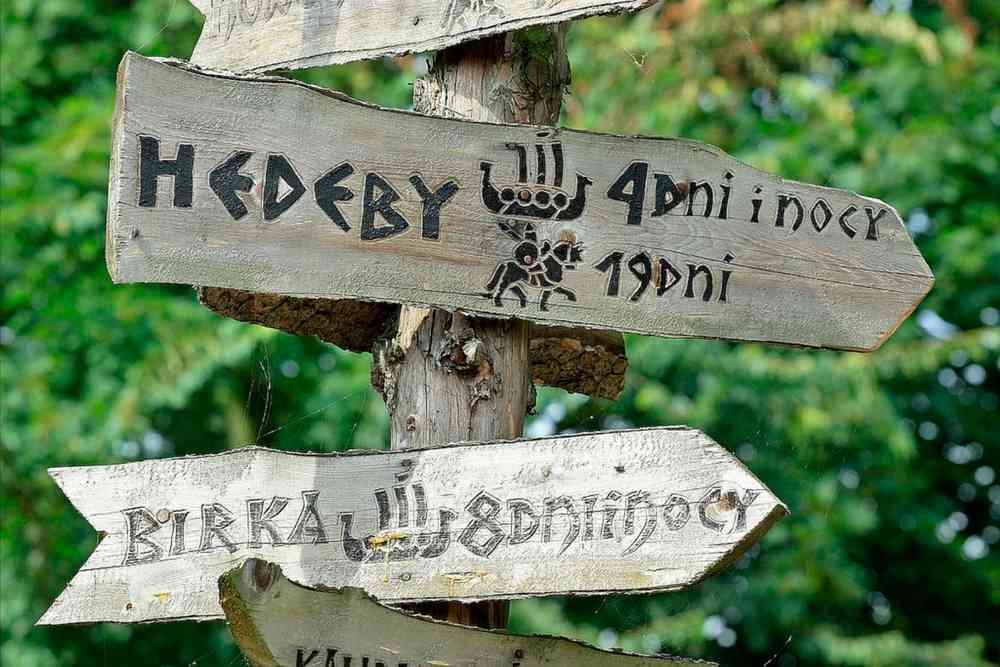 HEDEBY 4 DNI i NOCY
19 DNI
BIRKA 8 DNI i NOCY